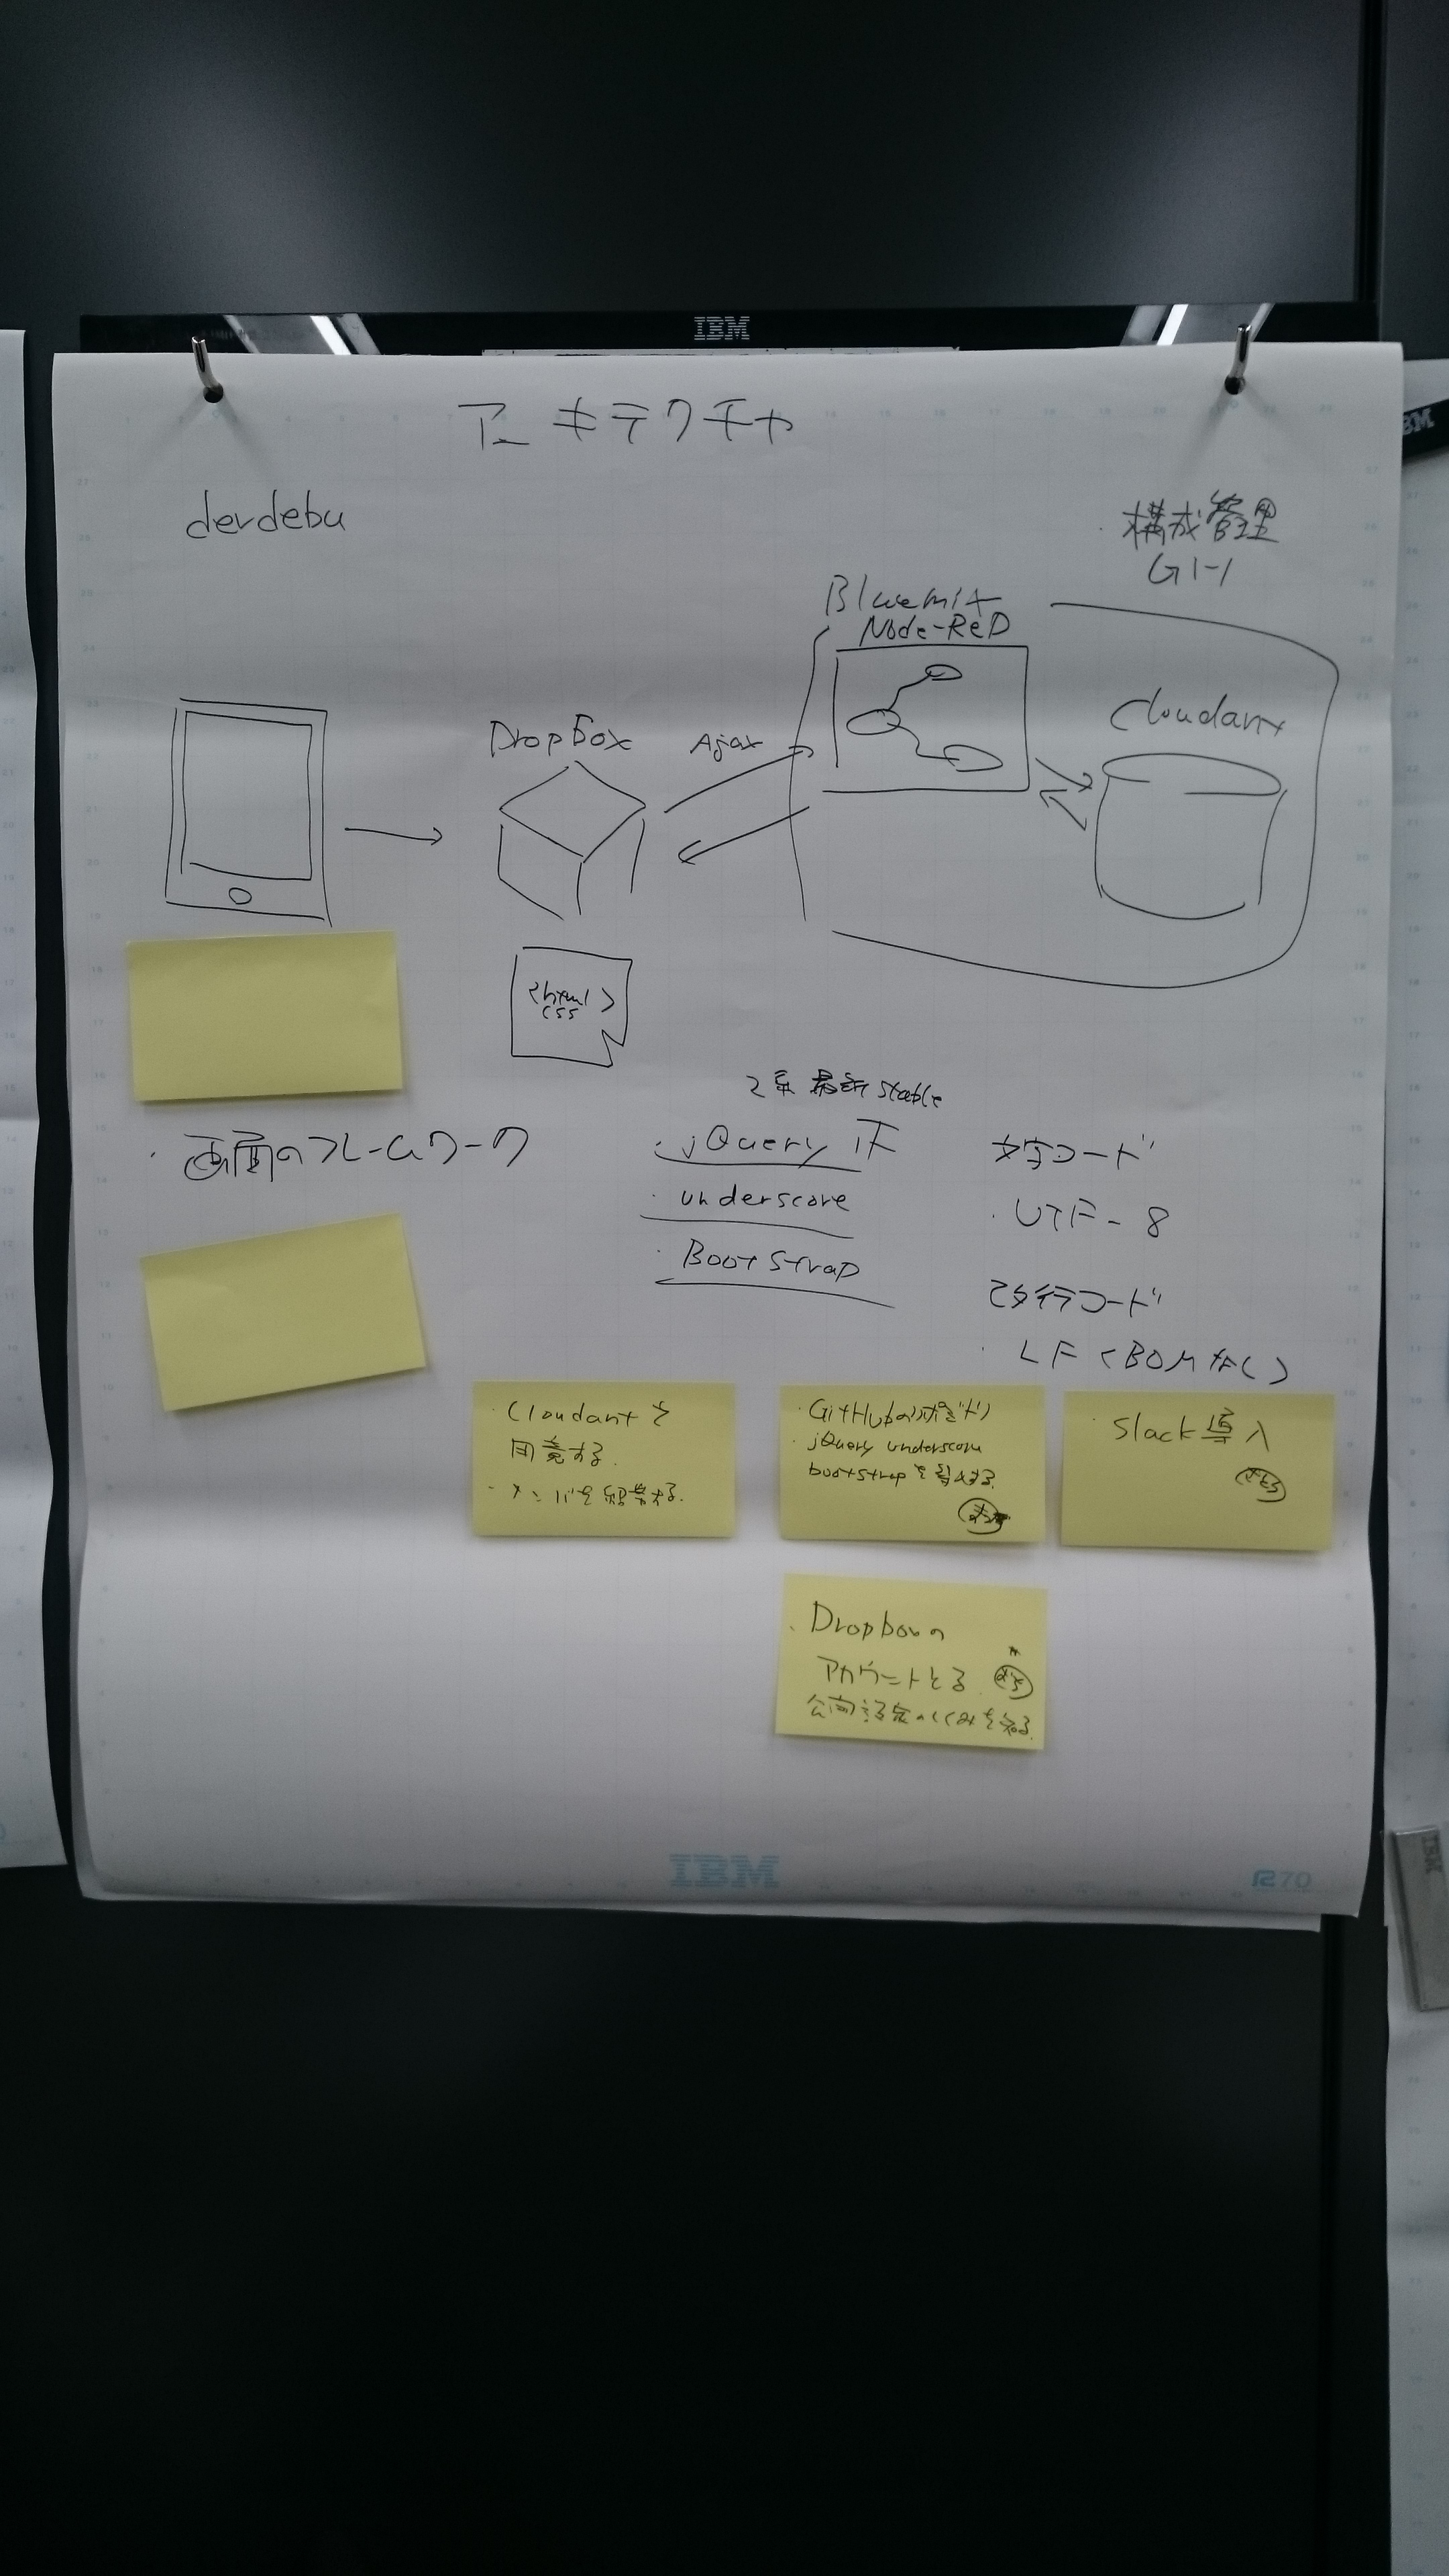 IBM
アーキテクチャ
derdebu
構成管理
GIT
Bluemix
Node-ReD
Cloudant
DropBox
Ajax
<html>
CSS
2系 最新 stable
・画面のフレームワーク
・jQuery
・underscore
・BootStrap
文字コード
・UTF-8
改行コード
・LF (BOMなし)
・Cloudantを
用意する.
・メンバを
・GitHubの
・jQuery underscore
bootstrapを
・Slack導入
・Dropboxの
アカウントとる.
公開設定のしくみを知る.
IBM
70
IBM
IBM